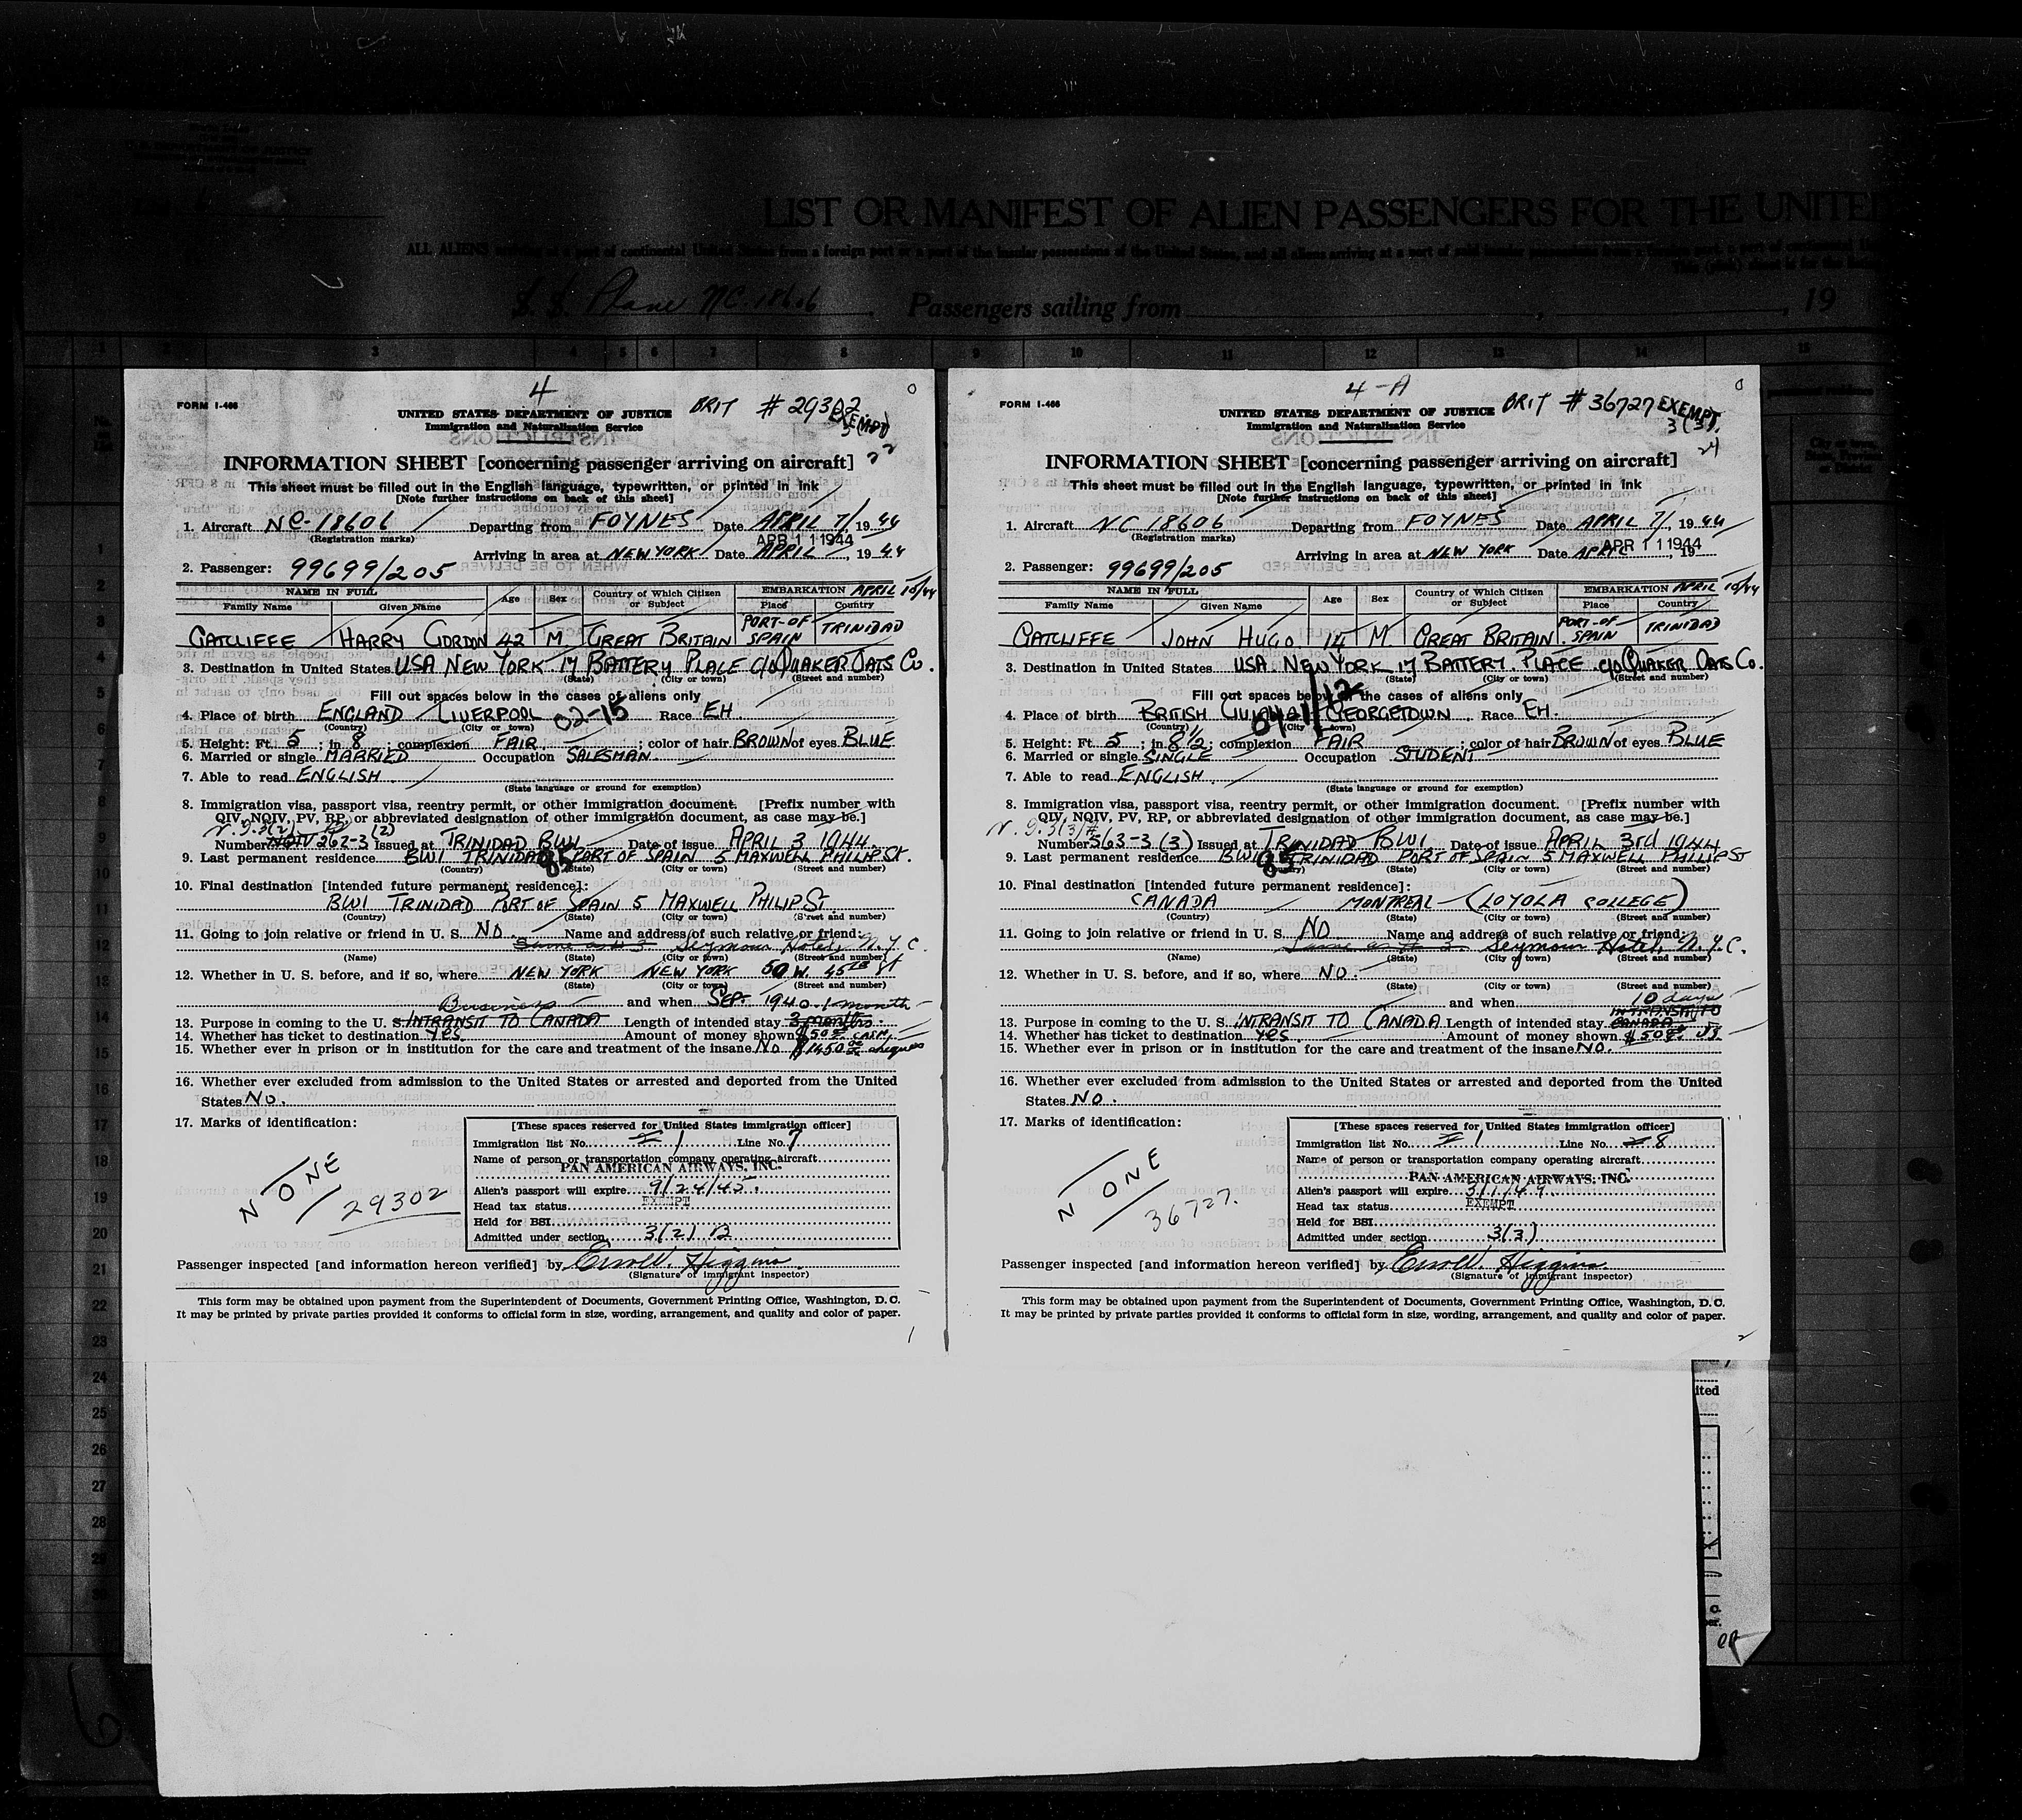 LIST OR MANIFEST OF ALIEN PASSENGERS FOR THE UNITED
ALL ALIENS arriving at a port of continental United States from a foreign port or a port of the insular possessions of the United States, and all aliens arriving at a port of said insular possessions from a foreign port, a port of continental
S. S. Plane NC-18606 Passengers sailing from , 19
1 2 3 4 5 6 7 8 9 10 11 12 13 14 15
4
FORM I-466
UNITED STATES DEPARTMENT OF JUSTICE
BRIT # 29302
Immigration and Naturalization Service
EXEMPT
22
INFORMATION SHEET [concerning passenger arriving on aircraft]
This sheet must be filled out in the English language, typewritten, or printed in ink
[Note further instructions on back of this sheet]
1. Aircraft NC-18606 Departing from FOYNES Date APRIL 7/ 1944
(Registration marks)
APR 11 1944
Arriving in area at NEW YORK Date APRIL , 1944
2. Passenger: 99699/205
NAME IN FULL Age Sex Country of Which Citizen or Subject EMBARKATION APRIL 10/44
Family Name Given Name Place Country
GATCLIFFE HARRY GORDON 42 M GREAT BRITAIN PORT-OF SPAIN TRINIDAD
3. Destination in United States USA NEW YORK 17 BATTERY PLACE C/O QUAKER OATS CO.
(State) (City or town) (Street and number)
Fill out spaces below in the cases of aliens only
4. Place of birth ENGLAND LIVERPOOL 02-15 Race EH.
(Country) (City or town)
5. Height: Ft. 5 ; in 8 ; complexion FAIR ; color of hair BROWN of eyes BLUE
6. Married or single MARRIED Occupation SALESMAN.
7. Able to read ENGLISH.
(State language or ground for exemption)
8. Immigration visa, passport visa, reentry permit, or other immigration document. [Prefix number with
QIV, NQIV, PV, RP, or abbreviated designation of other immigration document, as case may be.]
Number NQIV 262-3 (2) Issued at TRINIDAD BWI Date of issue APRIL 3 1944
9. Last permanent residence BWI TRINIDAD 85 PORT OF SPAIN 5 MAXWELL PHILIP ST.
(Country) (State) (City or town) (Street and number)
10. Final destination [intended future permanent residence]:
BWI TRINIDAD PORT OF SPAIN 5 MAXWELL PHILIP ST
(Country) (State) (City or town) (Street and number)
11. Going to join relative or friend in U. S. NO. Name and address of such relative or friend:
Same as # 3 Seymour Hotel, N.Y.C.
(Name) (State) (City or town) (Street and number)
12. Whether in U. S. before, and if so, where NEW YORK NEW YORK 50 W. 45TH ST
(State) (City or town) (Street and number)
Business and when SEP. 1940. 1 month
13. Purpose in coming to the U. S INTRANSIT TO CANADA Length of intended stay 3 months
14. Whether has ticket to destination YES. Amount of money shown $50 00 CASH,
15. Whether ever in prison or in institution for the care and treatment of the insane NO $1450 00 cheques
16. Whether ever excluded from admission to the United States or arrested and deported from the United
States NO.
17. Marks of identification:
NONE
29302
[These spaces reserved for United States immigration officer]
Immigration list No. 1 Line No. 7
Name of person or transportation company operating aircraft
PAN AMERICAN AIRWAYS, INC.
Alien's passport will expire 9/24/45.
Head tax status EXEMPT
Held for BSI
Admitted under section 3(2) B
Passenger inspected [and information hereon verified] by Errol W. Higgins
(Signature of immigrant inspector)
This form may be obtained upon payment from the Superintendent of Documents, Government Printing Office, Washington, D. C.
It may be printed by private parties provided it conforms to official form in size, wording, arrangement, and quality and color of paper.
1
4-A
FORM I-466
UNITED STATES DEPARTMENT OF JUSTICE
BRIT # 36727 EXEMPT
Immigration and Naturalization Service
3(3).
24
INFORMATION SHEET [concerning passenger arriving on aircraft]
This sheet must be filled out in the English language, typewritten, or printed in ink
[Note further instructions on back of this sheet]
1. Aircraft NC 18606 Departing from FOYNES Date APRIL 7/, 1944
(Registration marks)
APR 11 1944
Arriving in area at NEW YORK Date APRIL 19
2. Passenger: 99699/205
NAME IN FULL Age Sex Country of Which Citizen or Subject EMBARKATION APRIL 10/44
Family Name Given Name Place Country
GATCLIFFE JOHN HUGO 14 M. GREAT BRITAIN PORT-OF SPAIN TRINIDAD
3. Destination in United States USA. NEW YORK 17 BATTERY. PLACE C/O QUAKER OATS CO.
(State) (City or town) (Street and number)
Fill out spaces below in the cases of aliens only
4. Place of birth BRITISH GUIANA GEORGETOWN Race EH.
(Country) (City or town)
5. Height: Ft. 5 ; in 8 1/2 ; complexion FAIR ; color of hair BROWN of eyes BLUE
6. Married or single SINGLE Occupation STUDENT
7. Able to read ENGLISH.
(State language or ground for exemption)
8. Immigration visa, passport visa, reentry permit, or other immigration document. [Prefix number with
QIV, NQIV, PV, RP, or abbreviated designation of other immigration document, as case may be.]
Number 563-3 (3) Issued at TRINIDAD BWI. Date of issue APRIL 3RD 1944
9. Last permanent residence BWI 85 TRINIDAD PORT OF SPAIN 5 MAXWELL PHILLIP ST
(Country) (State) (City or town) (Street and number)
10. Final destination [intended future permanent residence]:
CANADA MONTREAL (LOYOLA COLLEGE)
(Country) (State) (City or town) (Street and number)
11. Going to join relative or friend in U. S. NO Name and address of such relative or friend:
Same as # 3 Seymour Hotel, N.Y.C.
(Name) (State) (City or town) (Street and number)
12. Whether in U. S. before, and if so, where NO.
(State) (City or town) (Street and number)
and when 10 days
INTRANSIT TO
13. Purpose in coming to the U. S. INTRANSIT TO CANADA Length of intended stay CANADA
14. Whether has ticket to destination YES. Amount of money shown $50
15. Whether ever in prison or in institution for the care and treatment of the insane NO.
16. Whether ever excluded from admission to the United States or arrested and deported from the United
States NO.
17. Marks of identification:
NONE
36727.
[These spaces reserved for United States immigration officer]
Immigration list No. 1 Line No. 8
Name of person or transportation company operating aircraft
PAN AMERICAN AIRWAYS, INC.
Alien's passport will expire 3/1/49.
Head tax status EXEMPT
Held for BSI
Admitted under section 3(3)
Passenger inspected [and information hereon verified] by Errol W. Higgins
(Signature of immigrant inspector)
This form may be obtained upon payment from the Superintendent of Documents, Government Printing Office, Washington, D. C.
It may be printed by private parties provided it conforms to official form in size, wording, arrangement, and quality and color of paper.
2